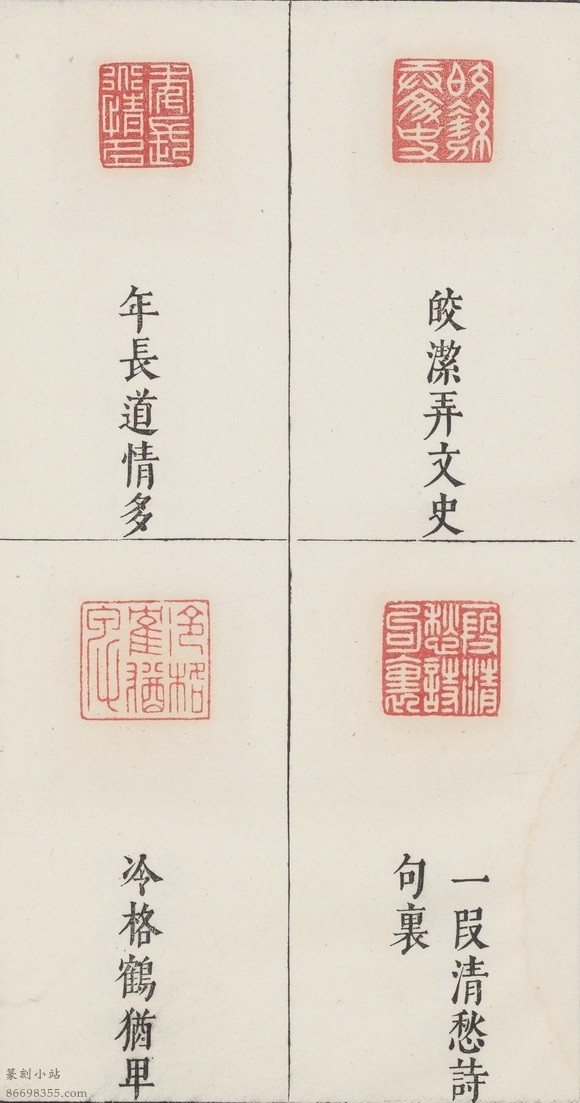 皎潔弄文史
年長道情多
一段清愁詩
句裏
冷格鶴猶甲
篆刻小站
86698355.com